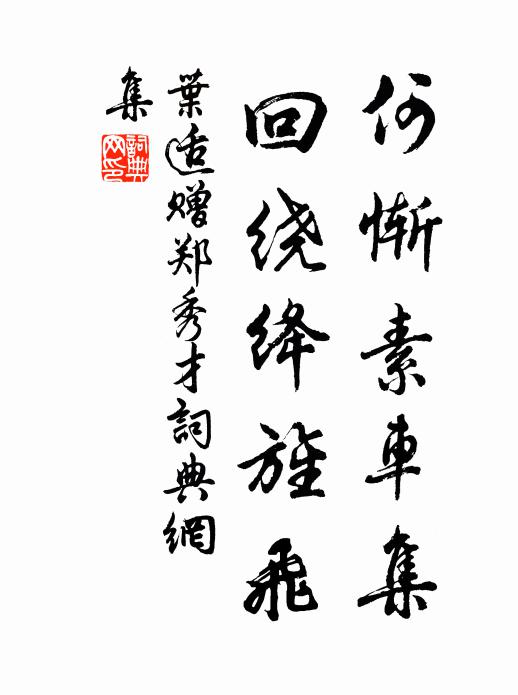 何惭素車集
回绕绛旌飛
葉适赠郑秀才詞典網
集
詞典
网印